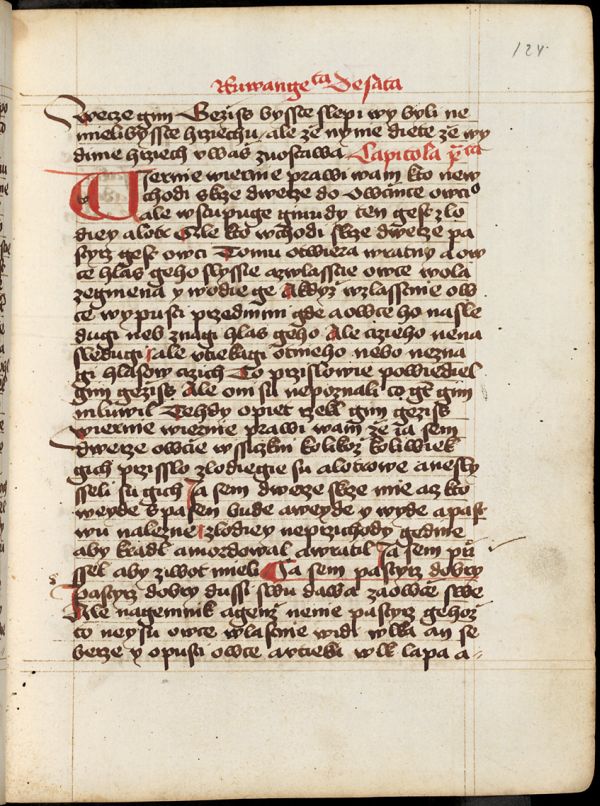 124
Ruwange cta Desata
Wecze gim Gezijss byssте slepi wy byli ne
mielibyssте hrziechu ale ze nynie diete ze wy
dime hrziech vwas zuostawa Capitola x cta
Wierzie wiernie prawi wam kto new
chodi skze dwerze do owczince owci
ale wstupuge gmudy ten gest zlo
diey alotr Ale kto wchodi skze dwerze pa
styrz gest owci Tomu otwiera wratny a ow
ce hlas geho slyssie azwlasscie owce wola
zegmena y wodie ge Akdyz wzlasstnie ow
ce wypusti przednimi gde aowce ho nasle
dugi neb znagi hlas geho Ale cizieho nena
sledugi ale vtiekagi otneho nebo nezna
gi hlasow cizich To przislowie powiediel
gim gezijss Ale oni su nepoznali co gt gim
mluwil Tehdy opiet rzekl gim gezijss
wierzie wiernie prawi wam ze ia sem
dwerze owcie wssiczkni kolikoz koliwiek
gich przisslo zlodiegie su alotrowe anesly
sseli su gich Ja sem dwerze skze mie acz kto
weyde spasen bude aweyde y wyde apast
wu nalezne zlodiey neprzichody gedine
aby kradl amordowal awratil Ja sem przi
ssel aby ziwot mieli Ja sem pastyrz dobry
pastyrz dobry dussi swu dawa zaowce swe
Ale nagemnik agenz nenie pastyrz gehoz
to neysu owce wlastnie widi wlka an se
berze y opusti owce avtieka wlk lapa a